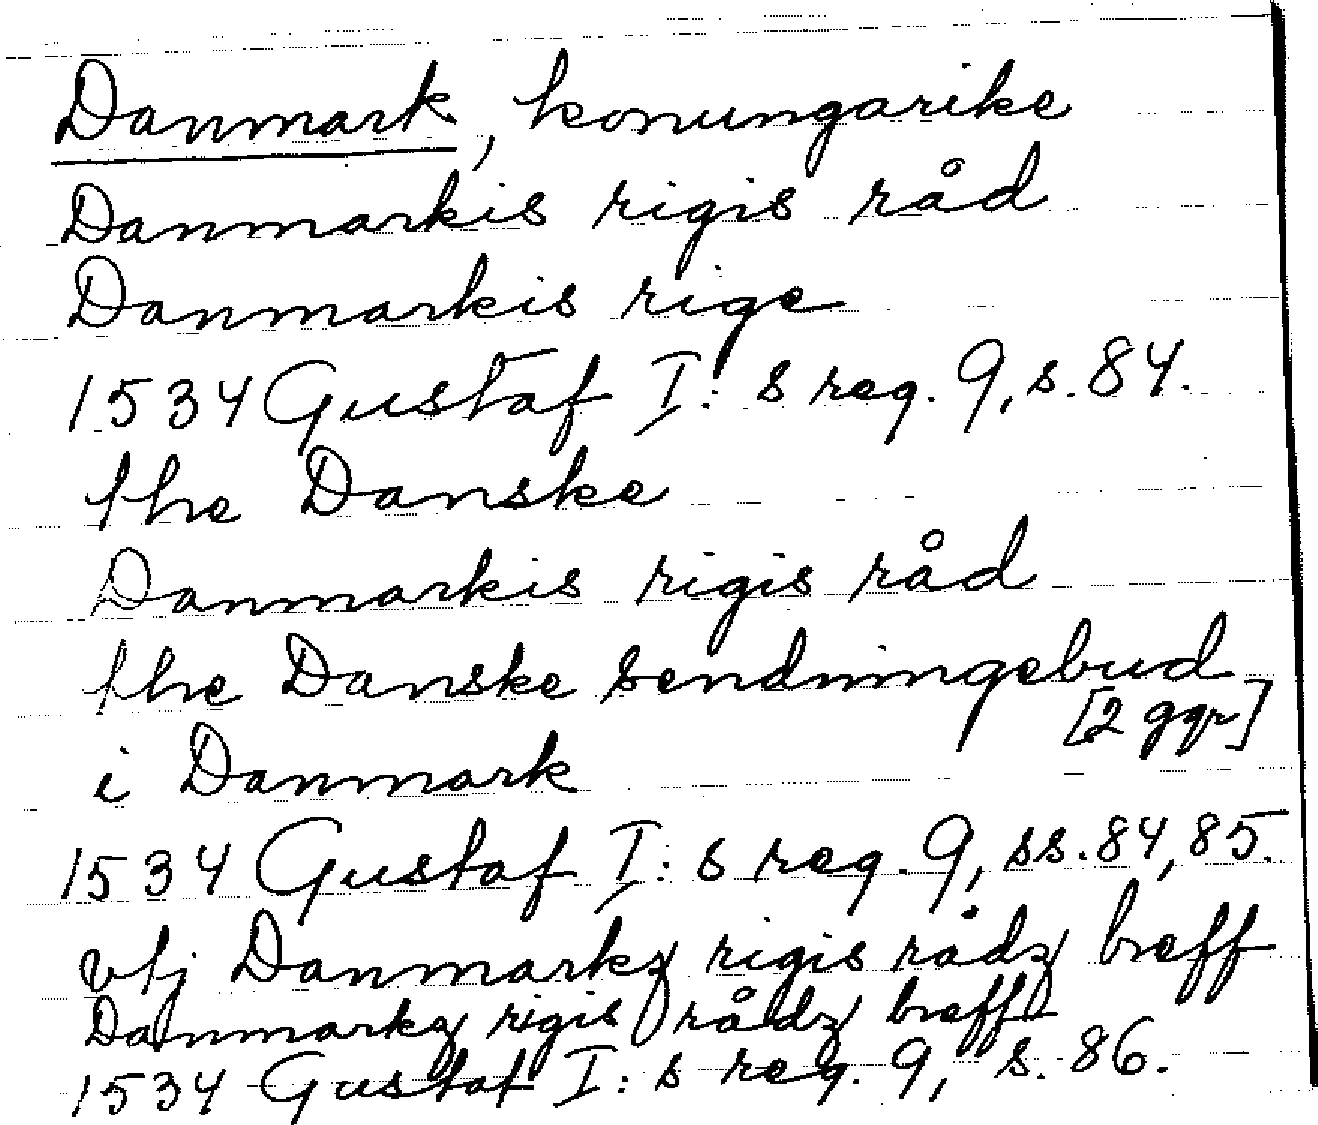 Danmark, konungarike
Danmarkis rigis råd
Danmarkis rige
1534 Gustaf I: s reg. 9, s. 84.
the Danske
Danmarkis rigis råd
the Danske sendningebud
[2 ggr]
i Danmark
1534 Gustaf I: s reg. 9, ss. 84, 85.
vtj Danmarkz rigis rådz breff
Danmarkz rigis rådz breff
1534 Gustaf I: s reg. 9, s. 86.